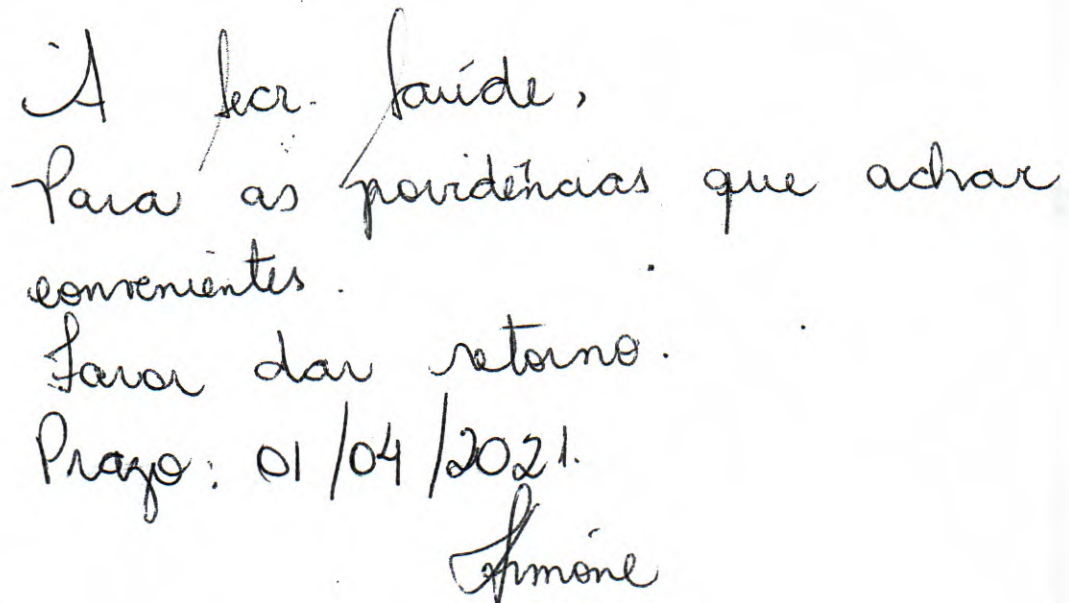 À Secr. Saúde,
Para as povidências que achar
convenientes.
Favor dar retorno.
Prazo: 01/04/2021.
Simone